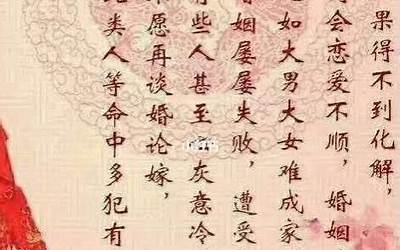 果得不到化解，
会恋爱不顺，婚姻
如大男大女难成家
姻屡屡失败，遭受
些人甚至灰意冷
愿再谈婚论嫁，
类人等命中多犯有